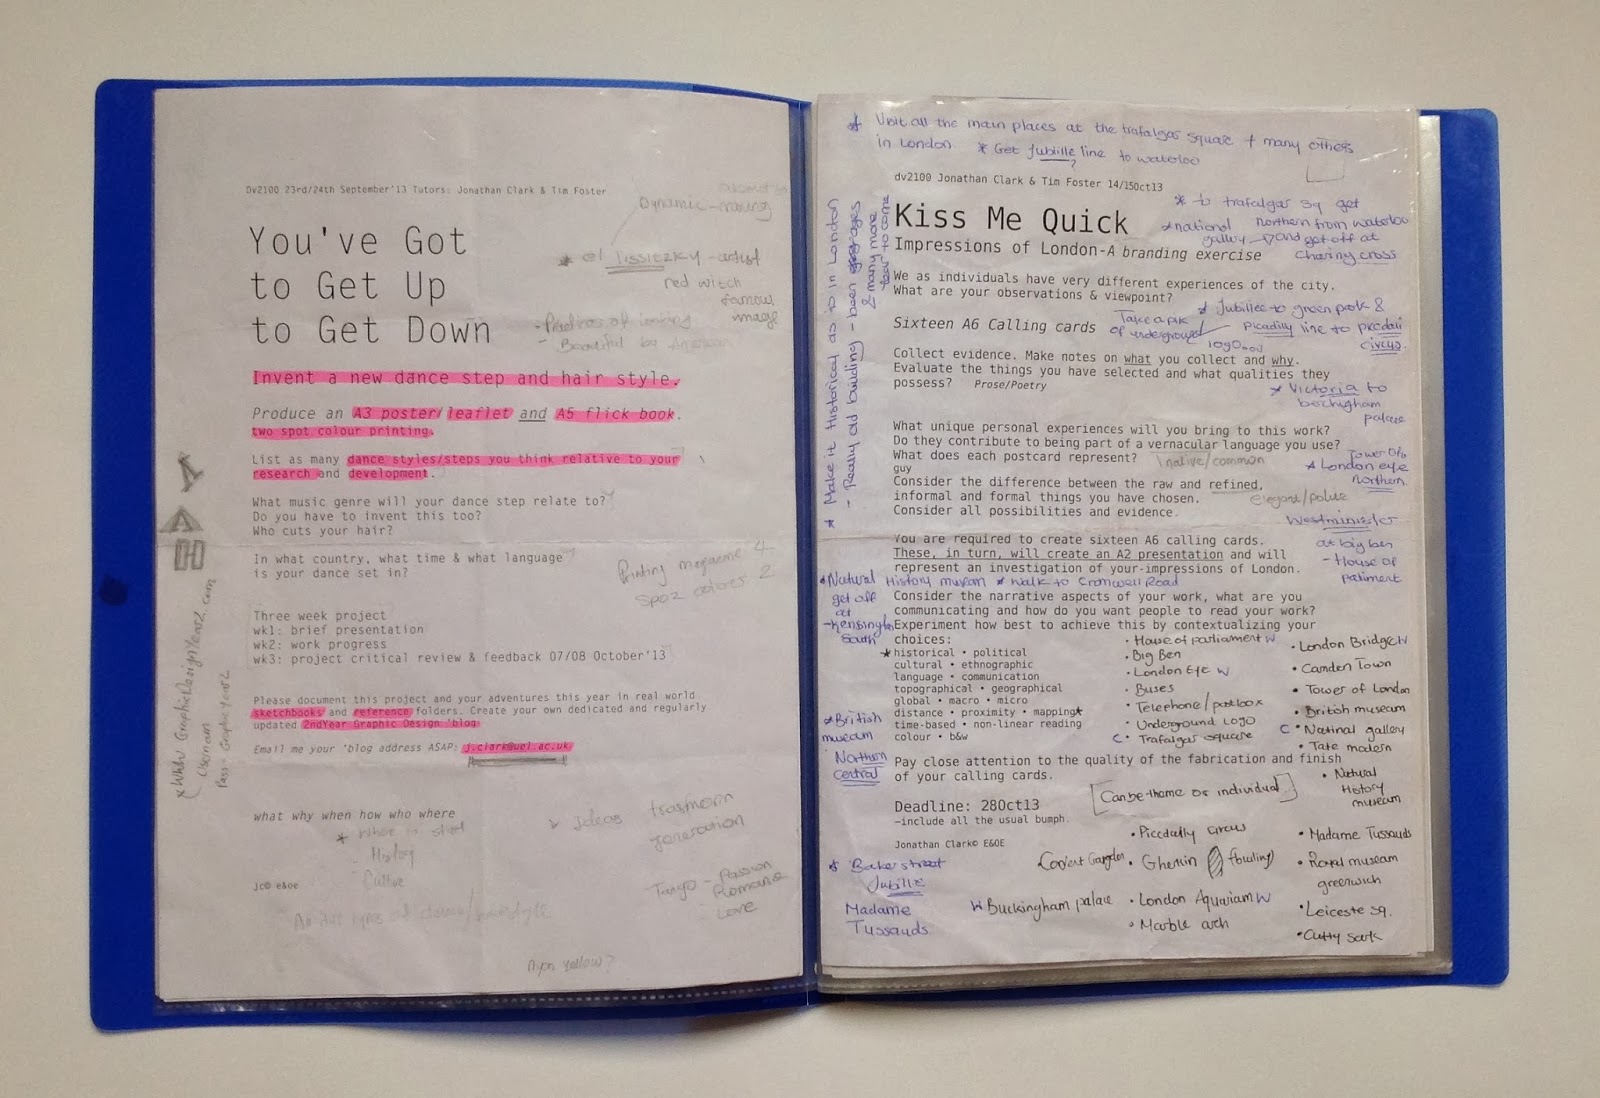 Dv2100 23rd/24th September'13 Tutors: Jonathan Clark & Tim Foster
Dynamic-moving
You've Got
to Get Up
to Get Down
* el lissitzky - artist
red witch
famous
image
Invent a new dance step and hair style.
Produce an A3 poster/leaflet and A5 flick book.
two spot colour printing.
List as many dance styles/steps you think relative to your
research and development.
What music genre will your dance step relate to?
Do you have to invent this too?
Who cuts your hair?
In what country, what time & what language
is your dance set in?
Printing magazine 4
Spot colores 2
Three week project
wk1: brief presentation
wk2: work progress
wk3: project critical review & feedback 07/08 October'13
Please document this project and your adventures this year in real world
sketchbooks and reference folders. Create your own dedicated and regularly
updated 2ndYear Graphic Design 'blog
Email me your 'blog address ASAP: j.clark@uel.ac.uk
what why when how who where
- History
- Culture
Jc© e&oe
Ideas
generation
Tango - Passion
Romance
Love
yellow?
* Visit all the main places at the trafalgar square + many others
in London * Get Jubille line to waterloo
?
dv2100 Jonathan Clark & Tim Foster 14/15Oct13
Kiss Me Quick
Impressions of London-A branding exercise
* to trafalgar sq get
northern from waterloo
and get off at
charing cross
* national
gallery
We as individuals have very different experiences of the city.
What are your observations & viewpoint?
Sixteen A6 Calling cards
Take a pic
of underground
logo
* Jubillee to green park &
Picadily line to
circus.
Collect evidence. Make notes on what you collect and why.
Evaluate the things you have selected and what qualities they
possess? Prose/Poetry
* Victoria to
palace
What unique personal experiences will you bring to this work?
Do they contribute to being part of a vernacular language you use?
What does each postcard represent?
native/common
guy
Consider the difference between the raw and refined,
informal and formal things you have chosen.
Consider all possibilities and evidence.
elegant/polite
* London eye
northern
Westminister
at big ben
- House of
paliment
You are required to create sixteen A6 calling cards.
These, in turn, will create an A2 presentation and will
represent an investigation of your-impressions of London.
* Natural History museam * walk to Cromwell Road
get off
at
- Kensington
South
Consider the narrative aspects of your work, what are you
communicating and how do you want people to read your work?
Experiment how best to achieve this by contextualizing your
choices:
* historical • political
cultural • ethnographic
language • communication
topographical • geographical
global • macro • micro
distance • proximity • mapping*
time-based • non-linear reading
colour • b&w
• House of parliament W
• Big Ben
• London Eye W
• Buses
• Telephone/postbox
• Underground Logo
C • Trafalgar square
• London Bridge W
• Camden Town
• Tower of London
• British museum
C • Natinal gallery
• Tate modern
• Natural
History
museam
* British
museam
Northern
central
Pay close attention to the quality of the fabrication and finish
of your calling cards.
Deadline: 28Oct13
-include all the usual bumph.
[Can be theme or individual]
Jonathan Clark© E&OE
* Baker street
Jubille
Madame
Tussauds
Covient Gargden
W Buckingham palace
• Piccdally circus
• Gherkin
• London Aquariam W
• Marble arch
• Madame Tussauds
• Royal museam
greenwich
• Leiceste sq.
• Cutty sark
* Make it Historical as is in London
- Really old building - been
& many more
to come